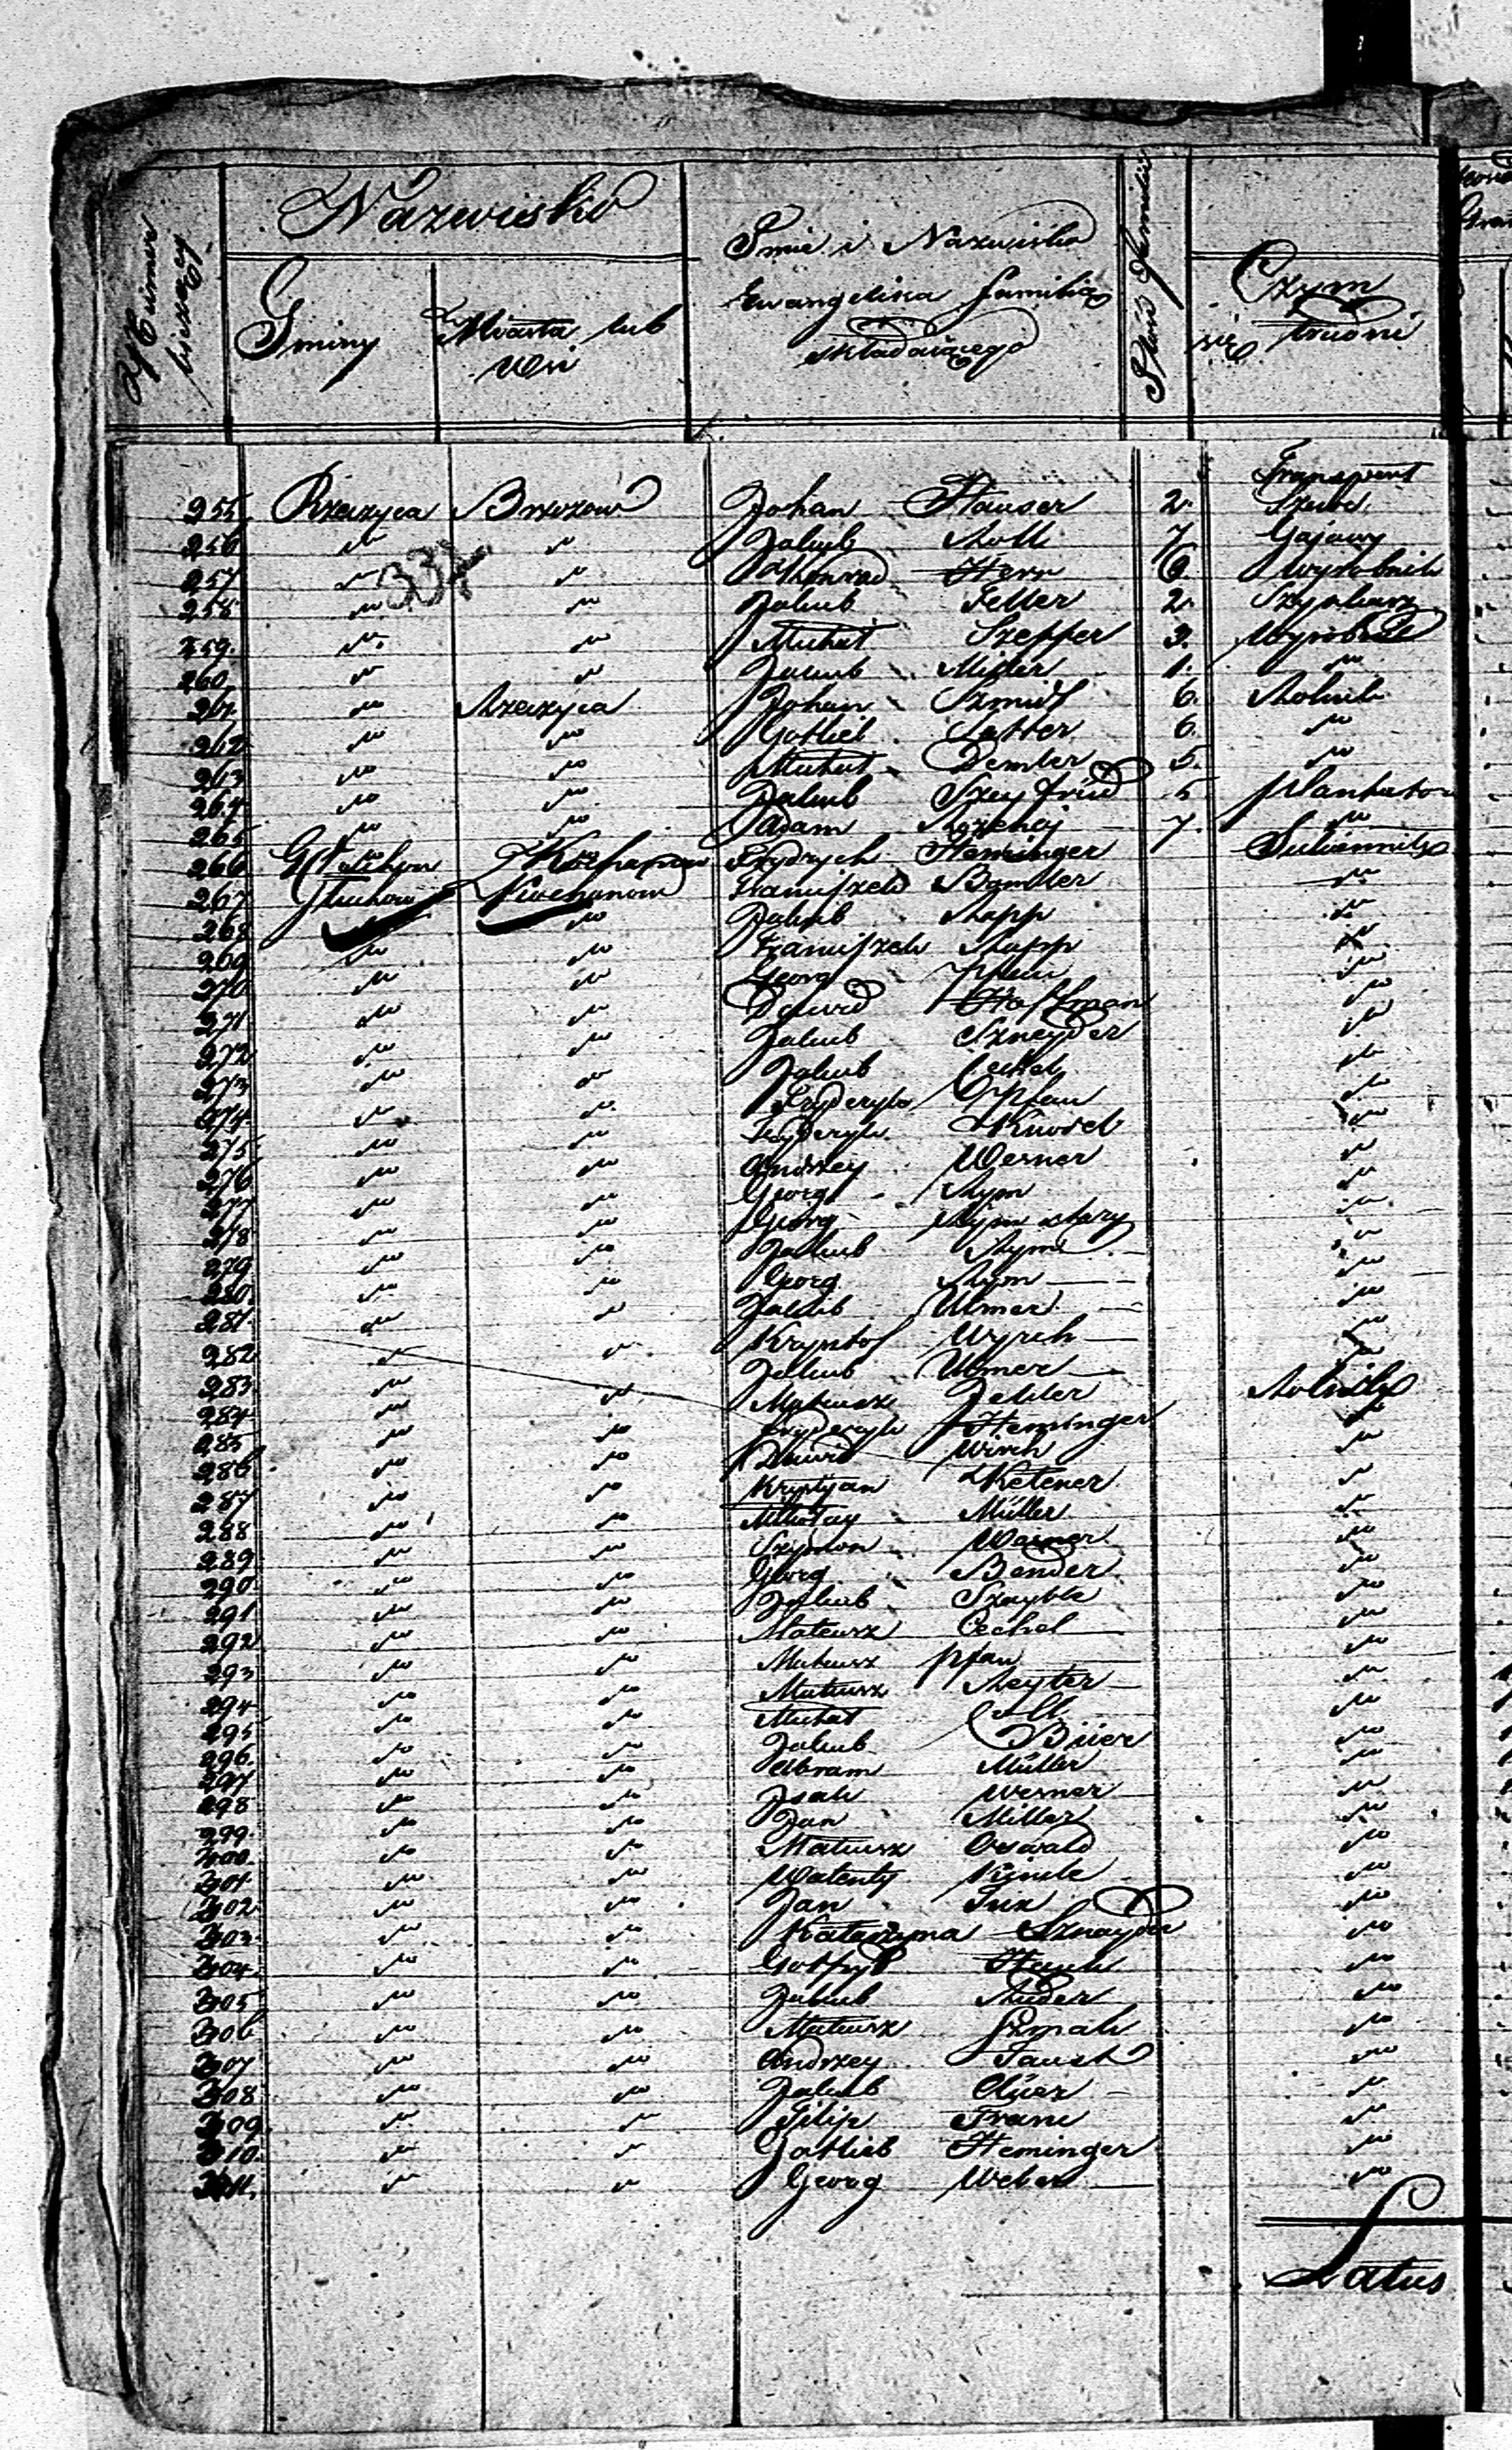 Numer bieżący
Nazwisko
Gminy
Miasta lub Wsi
Imie i Nazwisko Ewangelika familią składaiącego
Ilość Familii
Czym się trudni
Transport
255. Rzeczyca Brzozow Johan Hauser 2. Szewc
256 " " Jakub Roll 7 Gajowy
257 " " Konrad Herr 6. Wyrobnik
258 " " Jakub Feller 2. Szynkarz
259. " " Michał Szeffer 3. Wyrobnik
260. " " Jakub Miller 1. "
261 " Rzeczyca Johan Szmidt 6. Rolnik
262 " " Gotlieb Satter 6. "
263 " " Michał Demler 5. "
264 " " Jakub Szeyfrid 5 plantator
265 " " Adam 7. "
266 Fryderych Heminger Sukiennik
267 Głuchow Kochanow Franciszek Bamler "
268 " " Jakub Rapp "
269 " " Franciszek Rapp "
270 " " Georg Pfau "
271 " " Dawid Hoffman "
272 " " Jakub Szneyder "
273 " " Jakub Cechel "
274 " " Fryderyk Pfau "
275 " " Fryderyk Knodel "
276 " " Andrzey Werner "
277 " " Georg Rym "
278 " " Georg Rym stary "
279 " " Jakub Rym "
280 " " Georg Rym "
281 " " Jakub Ulmer "
282 " " Krysztof Wyrch "
283 " " Jakub Ulmer "
284 " " Mateusz Zekler Rolnik
285 " " Fryderyk Heminger "
286 " " Dawid Wirch "
287 " " Krystyan Ketener "
288 " " Mikołay Müller "
289 " " Szymon Warner "
290 " " Georg Bender "
291 " " Jakub Szayble "
292 " " Mateusz Cechel "
293 " " Mateusz Pfau "
294 " " Mateusz Reyter "
295 " " Michał All "
296. " " Jakub Büer "
297 " " Abram Müller "
298 " " Isak Werner "
299. " " Jan Miller "
300. " " Mateusz Oswald "
301 " " Walenty Kinde "
302 " " Jan Fux "
303 " " Katarzyna Sznayder "
304. " " Gotfryd Hauk "
305 " " Jakub Ruder "
306 " " Mateusz Szmak "
307 " " Andrzey Faust "
308 " " Jakub Clüer "
309 " " Filip Franc "
310. " " Gotlieb Heminger "
311. " " Georg Weber "
Latus